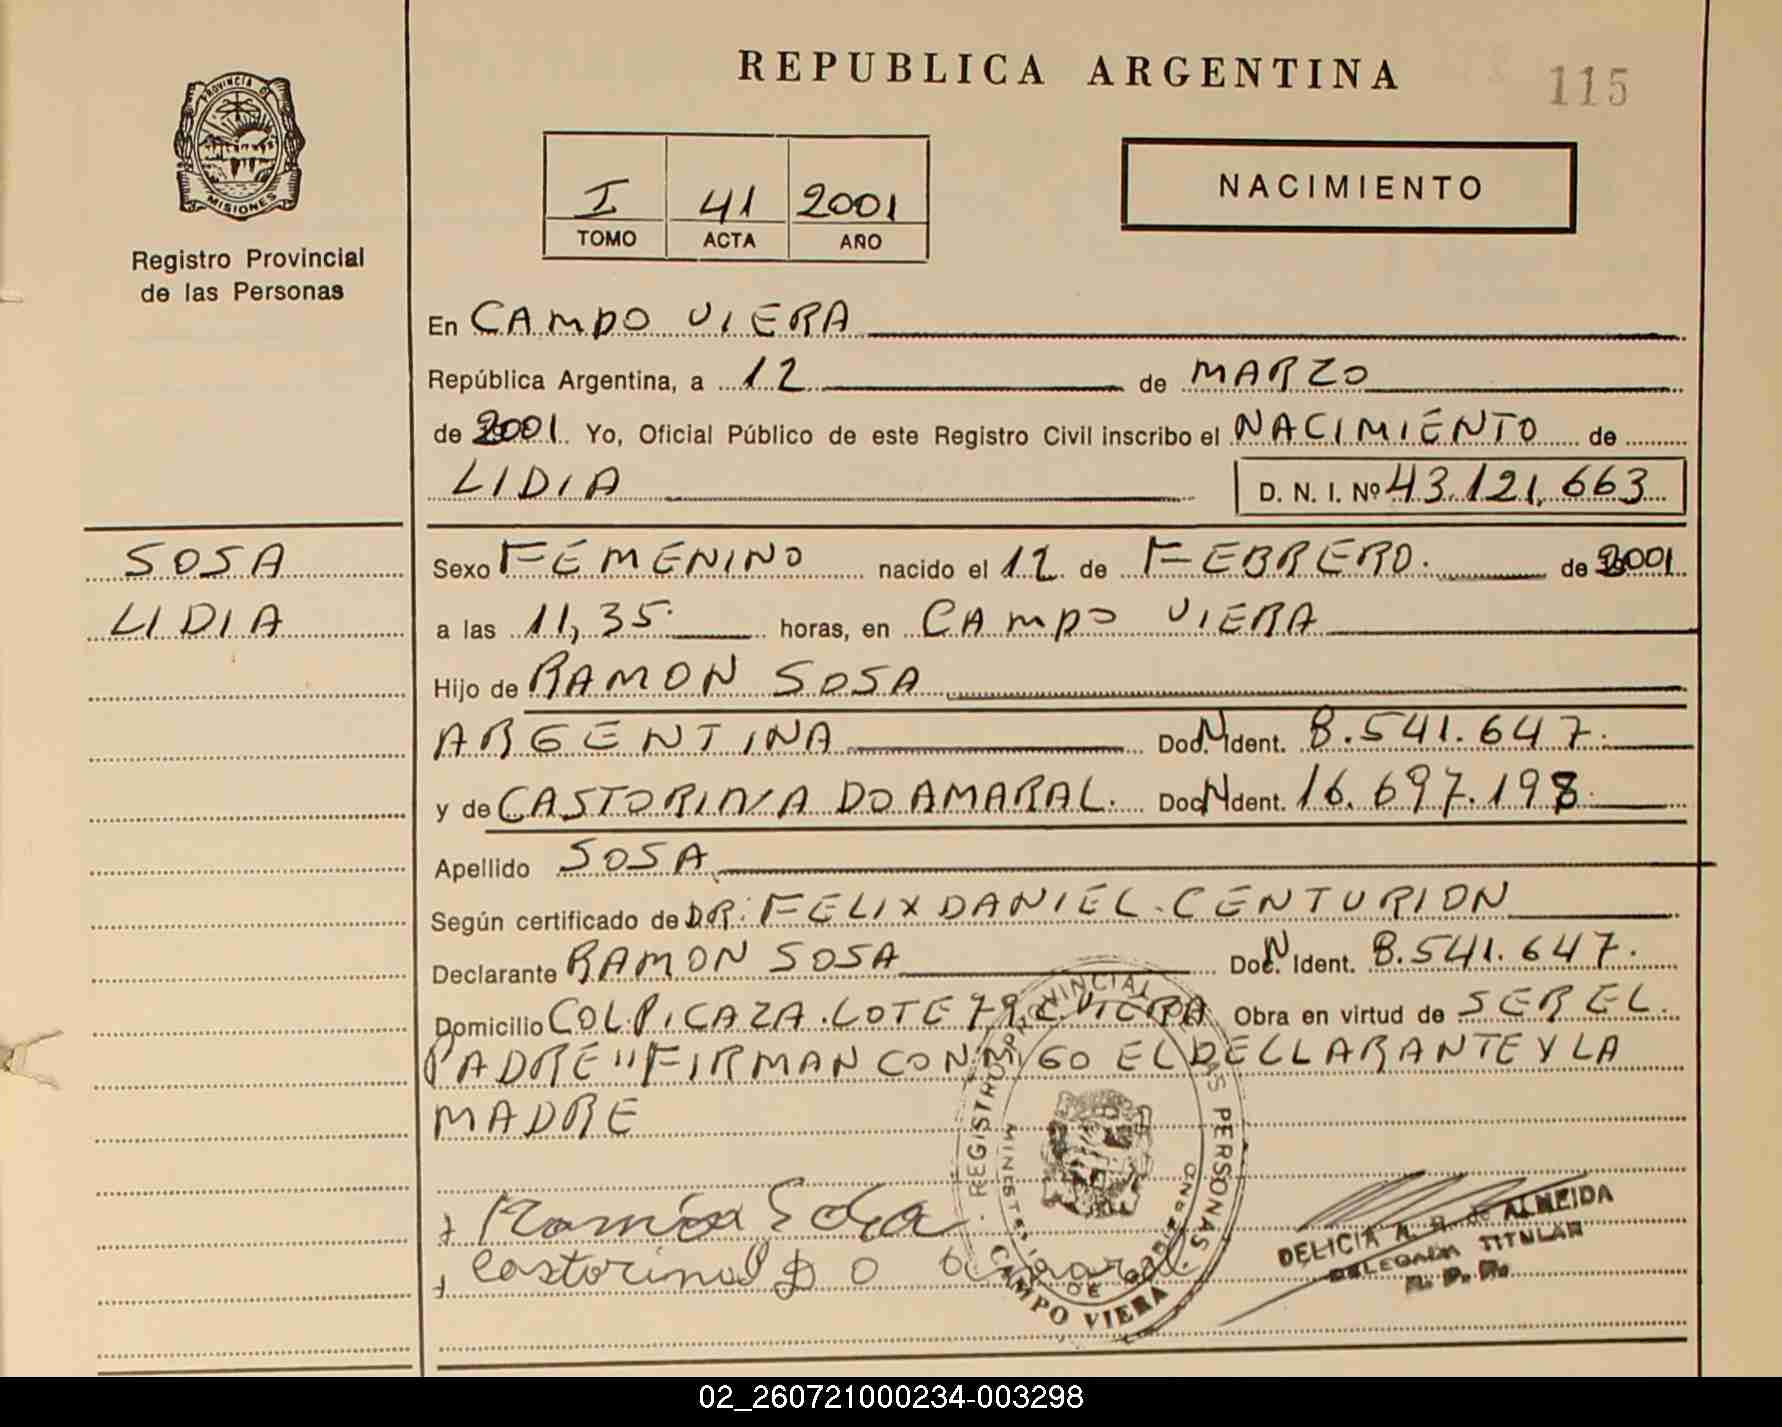 REPUBLICA ARGENTINA
115
PROVINCIA D
MISIONES
Registro Provincial
de las Personas
I 41 2001
TOMO ACTA AÑO
NACIMIENTO
En CAMPO VIERA
República Argentina, a 12 de MARZO
de 2001 Yo, Oficial Público de este Registro Civil inscribo el NACIMIENTO de
LIDIA D. N. I. Nº 43.121.663
SOSA
LIDIA
Sexo FEMENINO nacido el 12 de FEBRERO. de 2001
a las 11,35 horas, en CAMPO VIERA
Hijo de RAMON SOSA
ARGENTINA Doc. N Ident. 8.541.647.
y de CASTORINA DO AMARAL. Doc. N Ident. 16.697.198
Apellido SOSA
Según certificado de DR. FELIX DANIEL CENTURION
Declarante RAMON SOSA Doc. N Ident. 8.541.647.
Domicilio COL. PICAZA. LOTE 79 C. VIERA Obra en virtud de SER EL.
PADRE "FIRMAN CONMIGO EL DECLARANTE Y LA
MADRE
Ramón Sosa
Castorina D O Amaral
REGISTRO PROVINCIAL DE LAS PERSONAS
MINISTERIO DE GOBIERNO
CAMPO VIERA
DELICIA A. R. de ALMEIDA
DELEGADA TITULAR
R. P. P.
02_260721000234-003298